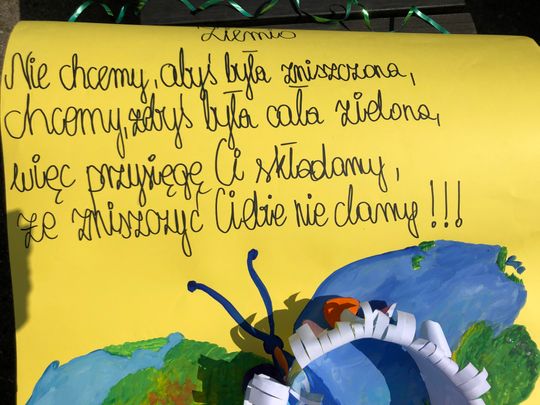 Ziemio
Nie chcemy, abyś była zniszczona,
chcemy, żebyś była cała zielona,
więc przysięgę Ci składamy,
że zniszczyć Ciebie nie damy!!!